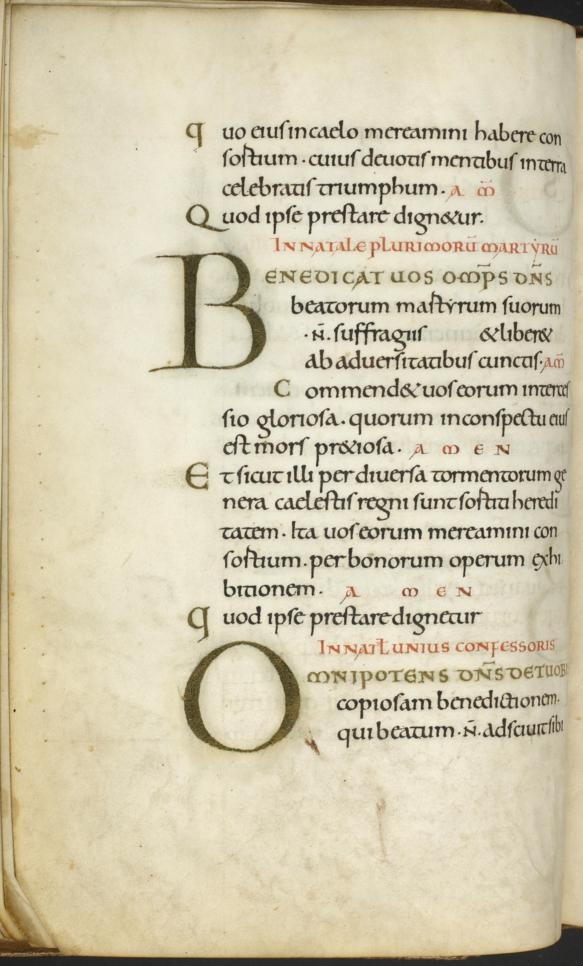 Quo eius in caelo mereamini habere con
sortium · cuius deuotis mentibus in terra
celebratis triumphum · A m̄
Quod ipse prestare dign&ur.
IN NATALE PLURIMORŪ MARTYRŪ
BENEDICAT UOS OMP̄S DN̄S
beatorum martyrum suorum
· N̄ · suffragiis &liber&
ab aduersitatibus cunctis · AM̄
Commend& uos eorum interces
sio gloriosa · quorum in conspectu eius
est mors pr&iosa · A M E N
Et sicut illi per diuersa tormentorum ge
nera caelestis regni sunt sortiti heredi
tatem · Ita uos eorum mereamini con
sortium · per bonorum operum exhi
bitionem · A M E N
Quod ipse prestare dignetur
IN NAT̄ UNIUS CONFESSORIS
OMNIPOTENS DN̄S DET UOB
copiosam benedictionem ·
qui beatum · N̄ · adsciuit sibi